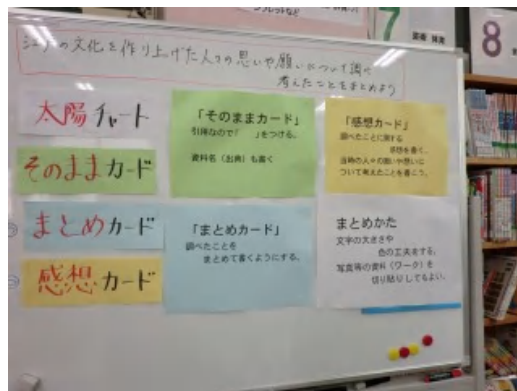 7
芸術 体育
8
江戸の文化を作り上げた人々の思いや願いについて調べ
考えたことをまとめよう
太陽チャート
そのままカード
まとめカード
感想カード
「そのままカード」
引用なので「　」をつける。
資料名（出典）も書く
「感想カード」
調べたことに関する
感想を書く。
当時の人々の願いや想いに
ついて考えたことを書こう。
「まとめカード」
調べたことを
まとめて書くようにする。
まとめかた
文字の大きさや
色の工夫をする。
写真等の資料（ワーク）を
切り貼りしてもよい。